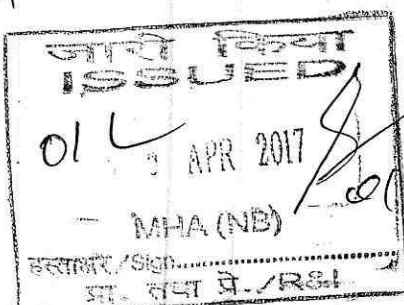 जारी किया
ISSUED
01 L
APR 2017
MHA (NB)
हस्ताक्षर/Sign...............
प्रा. तथा प्रे./R&I